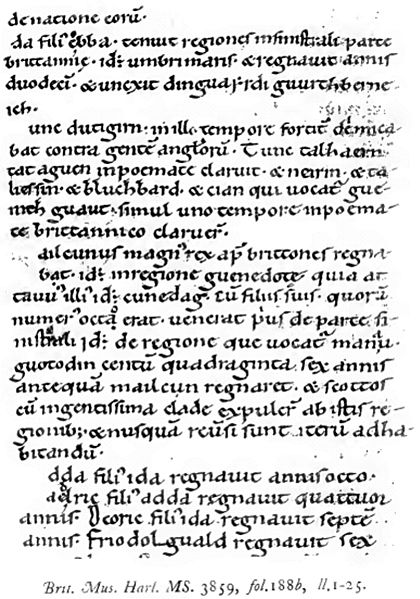 de natione eorū.
da filiꝰ ebba · tenuit regiones insinistrali parte
brittannię · idꝫ umbri maris · & regnauit annis
duodecī · & unexit dinguayrdi guurth berne
ich.
unc dutigirn · in illo tempore fortit̄ dimica
bat contra gentē anglorū · Tunc talhaern
tat aguen in poemate claruit · & neirin · & ta
liessin · & bluchbard · & cian qui uocat̄ gue
nith guaut · simul uno tempore in poema
te brittannico claruer̄.
ailcunus magnꝰ rex ap̄ brittones regna
bat · idꝫ in regione guenedote quia at
tauuꝰ illiꝰ idꝫ cunedag · cū filiis suis · quorū
numerꝰ octo erat · uenerat p'us de parte si
nistrali idꝫ de regione que uocat̄ manau
guotodin centū quadraginta sex annis
antequā mailcun regnaret · & scottos
cū ingentissima clade expuler̄ ab istis re
gionibꝫ · & nusquā reu̅si sunt iterū ad ha
bitandū.
dda filiꝰ ida regnauit annis octo.
aedric filiꝰ adda regnauit quattuor
annis. Deoric filiꝰ ida regnauit septē
annis. Friodolguald regnauit sex
Brit. Mus. Harl. MS. 3859, fol. 188b, ll. 1-25.